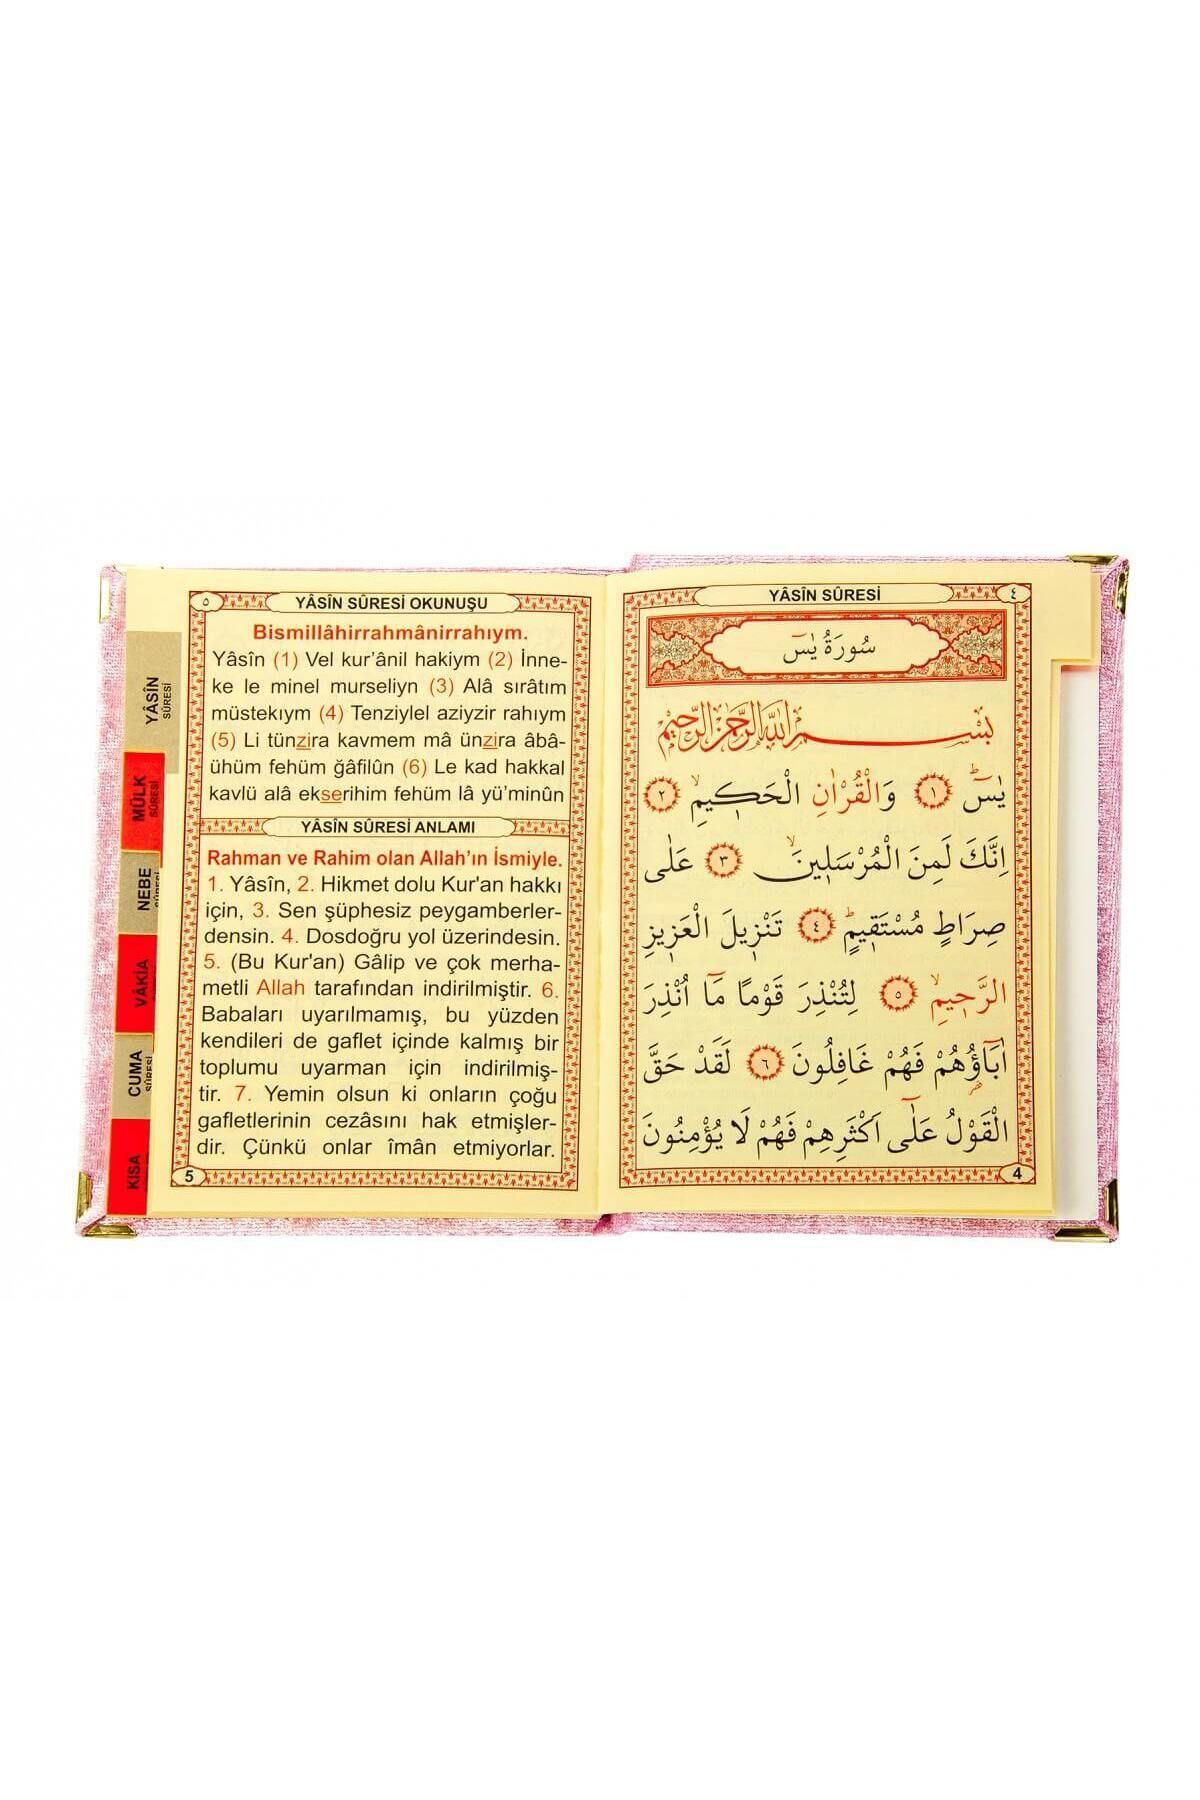 YÂSÎN SÛRESİ
٤
سُورَةُ يٰسٓ
بِسْمِ اللّٰهِ الرَّحْمٰنِ الرَّحِيمِ
يٰسٓ ۚ ﴿١﴾ وَالْقُرْاٰنِ الْحَك۪يمِۙ ﴿٢﴾
اِنَّكَ لَمِنَ الْمُرْسَل۪ينَۙ ﴿٣﴾ عَلٰى
صِرَاطٍ مُسْتَق۪يمٍۜ ﴿٤﴾ تَنْز۪يلَ الْعَز۪يزِ
الرَّح۪يمِۙ ﴿٥﴾ لِتُنْذِرَ قَوْمًا مَٓا اُنْذِرَ
اٰبَٓاؤُهُمْ فَهُمْ غَافِلُونَ ﴿٦﴾ لَقَدْ حَقَّ
الْقَوْلُ عَلٰٓى اَكْثَرِهِمْ فَهُمْ لَا يُؤْمِنُونَ
4
٥
YÂSÎN SÛRESİ OKUNUŞU
Bismillâhirrahmânirrahıym.
Yâsîn (1) Vel kur’ânil hakiym (2) İnne-
ke le minel murseliyn (3) Alâ sırâtım
müstekıym (4) Tenziylel aziyzir rahıym
(5) Li tünzira kavmem mâ ünzira âbâ-
ühüm fehüm ğâfilûn (6) Le kad hakkal
kavlü alâ ekserihim fehüm lâ yü’minûn
YÂSÎN SÛRESİ ANLAMI
Rahman ve Rahim olan Allah’ın İsmiyle.
1. Yâsîn, 2. Hikmet dolu Kur'an hakkı
için, 3. Sen şüphesiz peygamberler-
densin. 4. Dosdoğru yol üzerindesin.
5. (Bu Kur'an) Gâlip ve çok merha-
metli Allah tarafından indirilmiştir. 6.
Babaları uyarılmamış, bu yüzden
kendileri de gaflet içinde kalmış bir
toplumu uyarman için indirilmiş-
tir. 7. Yemin olsun ki onların çoğu
gafletlerinin cezâsını hak etmişler-
dir. Çünkü onlar îmân etmiyorlar.
5
YÂSÎN
SÛRESİ
MÜLK
SÛRESİ
NEBE
SÛRESİ
VÂKIA
CUMA
SÛRESİ
KISA